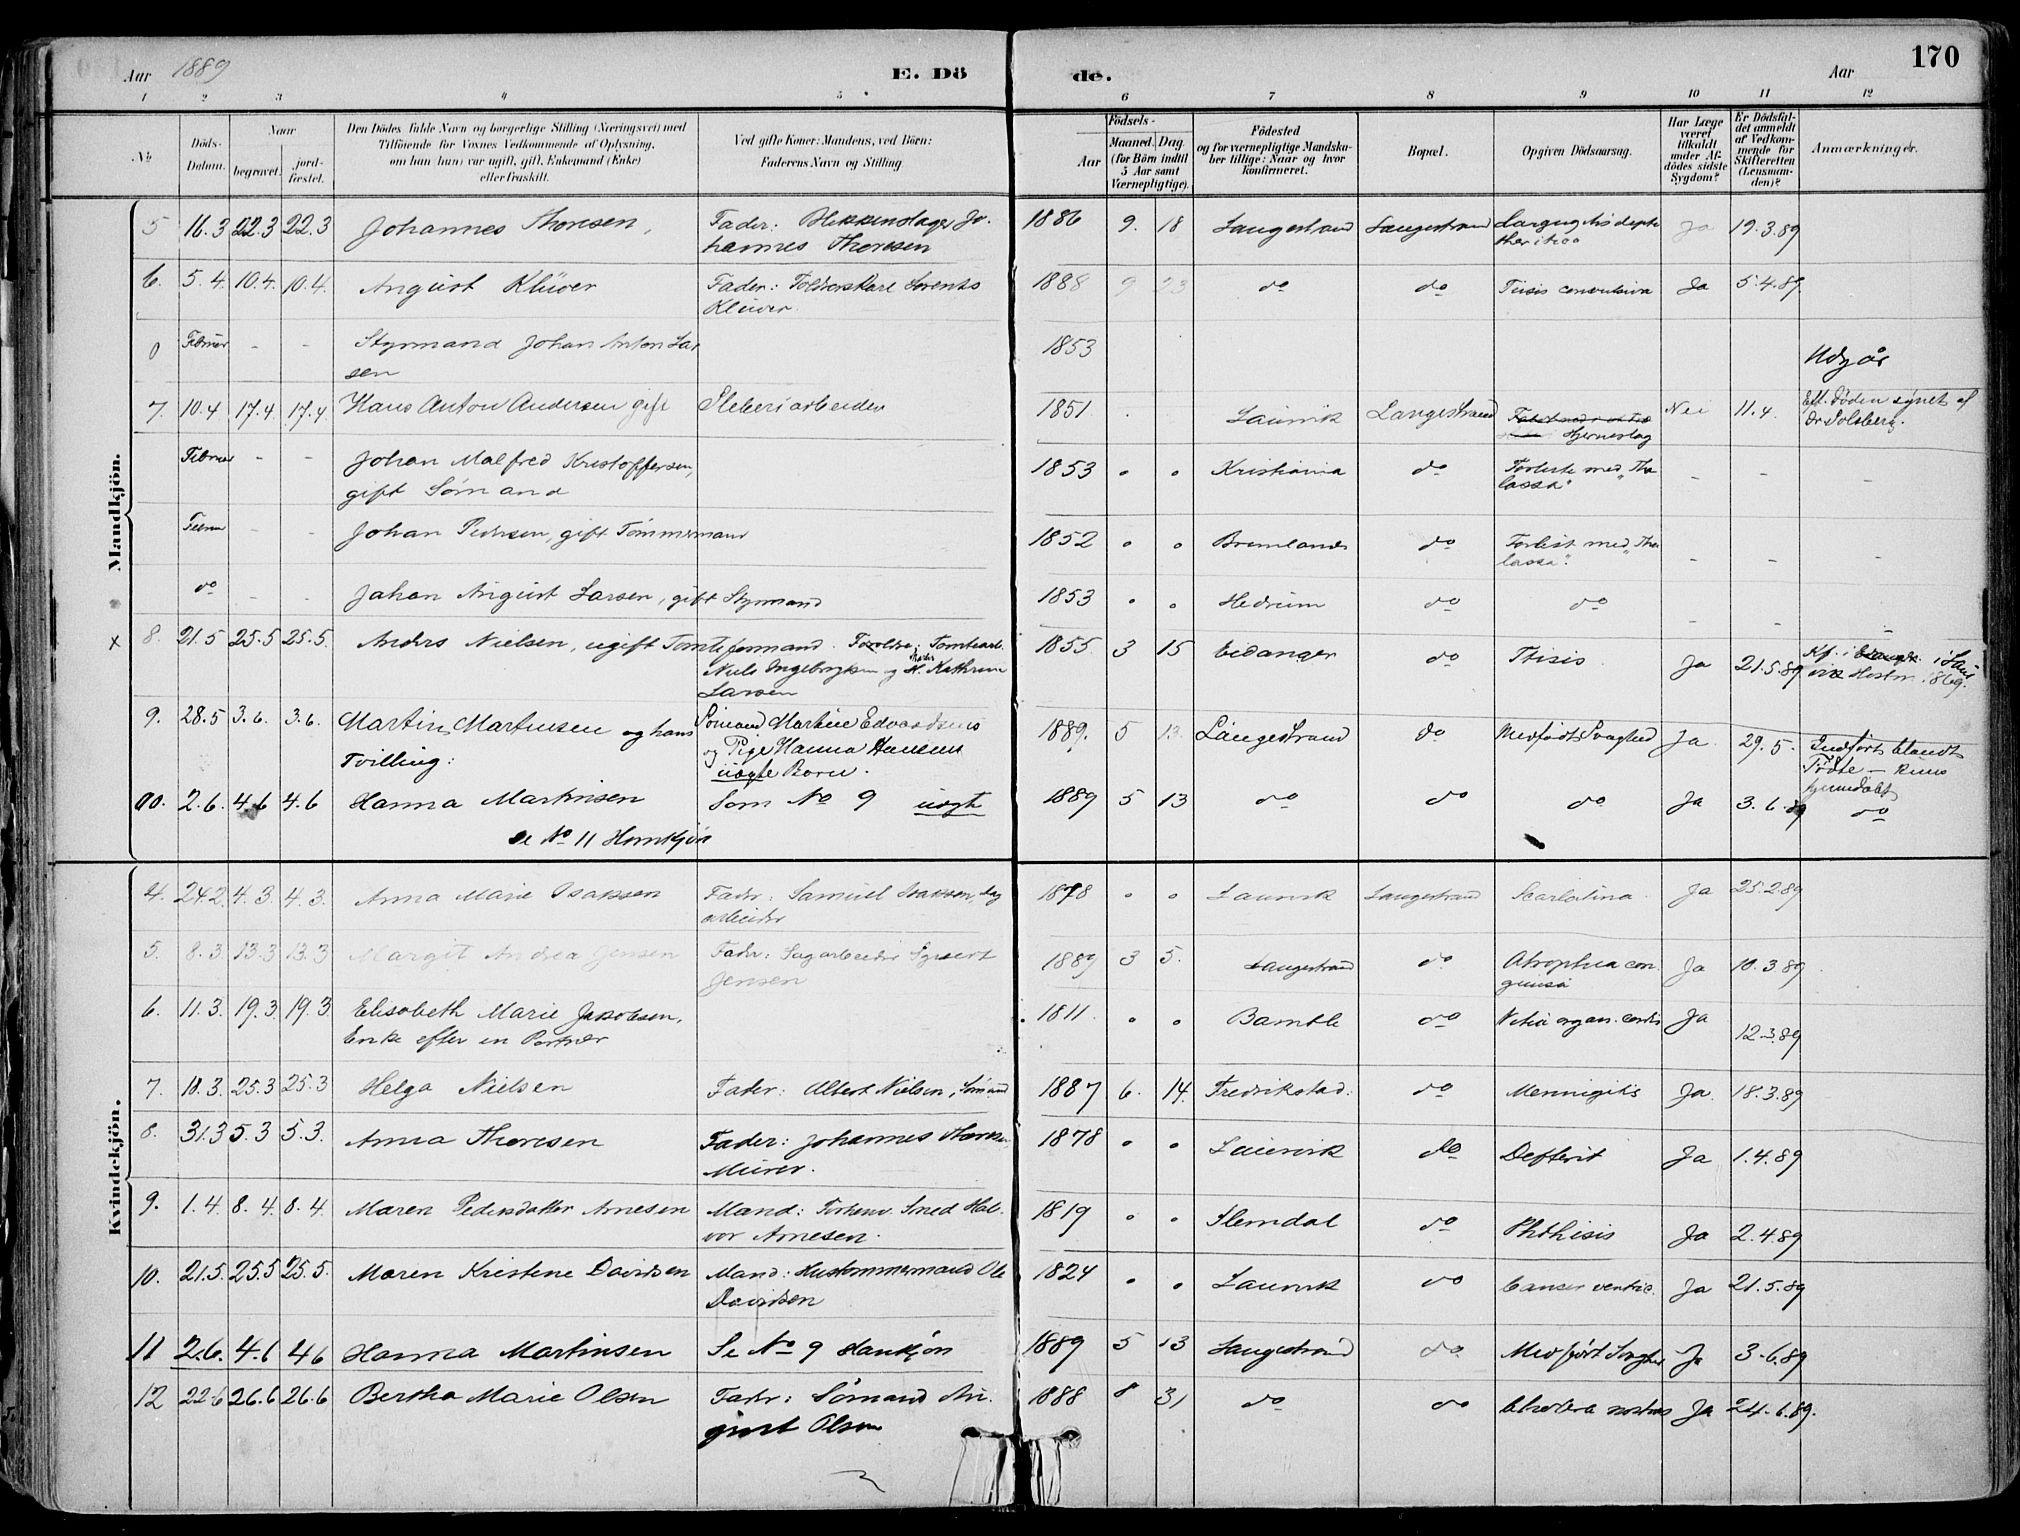 Aar 1889 E. Dö de. Aar 170
1 2 3 4 5 6 7 8 9 10 11 12
No
Döds-Datum.
Naar
begravet.
jord-fæstet.
Den Dödes fulde Navn og borgerlige Stilling (Næringsvei) med
Tilföiende for Voxnes Vedkommende af Oplysning,
om han (hun) var ugift, gift, Enkemand (Enke)
eller fraskilt.
Ved gifte Koner: Mandens, ved Börn:
Faderens Navn og Stilling
Födsels-
Aar
Maaned. Dag.
(for Börn indtil
5 Aar samt
Værnepligtige).
Födested
og for værnepligtige Mandska-
ber tillige: Naar og hvor
konfirmeret.
Bopæl.
Opgiven Dödsaarsag.
Har Læge
været
tilkaldt
under Af-
dödes sidste
Sygdom?
Er Dödsfal-
det anmeldt
af Vedkom-
mende for
Skifteretten
(Lensman-
den)?
Anmærkninger.
Mandkjön.
5 16.3 22.3 22.3 Johannes Thoresen, Fader: Blikkenslager Jo- 1886 9. 18 Langestrand Langestrand Ja 19.3.89
hannes Thoresen
6. 5.4. 10.4. 10.4. August Klüver Fader: Klüver. 1888 9 23 do do convulsiva Ja 5.4.89
0 Februar - - Styrmand Johan Anton Lar 1853
sen Udgår
7. 10.4 17.4. 17.4 Hans Anton Andersen gift Støberiarbeider 1851 Laurvik Langestrand Nei 11.4. Eft. Døden synet af
Hjerneslag Dr Solberg.
Februar - - Johan Malfred Kristoffersen, 1853 " " Kristiania do Forliste med "Tha- - -
gift Sømand lassa"
Februar - - Johan Pedersen, gift Tømmermand 1852 " " do Forlist med "Tha- - -
lassa".
do - - Johan August Larsen, gift Styrmand 1853 " " Hedrum do do - -
x 8. 21.5 25.5 25.5. Anders Nielsen, ugift Tomteformand. Forældre: Tomtearb. 1855 3 15 Eidanger do Ftisis Ja 21.5.89
Niels Ingebrigtsen og Kathrine
Larsen
9. 28.5 3.6. 3.6. Martin Martinsen og hans Sømand Martin Edvardsens 1889. 5 13. Langestrand do Medfødt Svaghed Ja. 29.5. Indført blandt
Tvilling: og Pige Hanna Hansens
uægte Børn.
10. 2.6. 4.6 4.6 Hanna Martinsen Som No 9 uægte 1889 5 13 do do do Ja 3.6.89 do
se No 11
Kvindekjön.
4. 24.2 4.3 4.3. Anna Marie Isaksen Fader: Samuel Isaksen, Sag 1878 " " Laurvik Langestrand Scarlatina. Ja 25.2.89
arbeider
5. 8.3. 13.3 13.3 Margit Andrea Jensen Fader: Sagarbeider Sgvert 1889 3 5. Langestrand do Atrophia con- Ja 10.3.89
Jensen
6. 11.3. 19.3 19.3 Elisabeth Marie Jakobsen, 1811. " " Bamble do organ. cordis Ja 12.3.89
Enke efter en Portner
7. 18.3. 25.3 25.3 Helga Nielsen Fader: Albert Nielsen, Sømand 1887 6. 14. Fredrikstad. do Meningitis Ja 18.3.89
8. 31.3 5.3 5.3. Anna Thoresen Fader: Johannes Thoresen 1878 " " Laurvik do Defterit Ja 1.4.89
Murer.
9. 1.4. 8.4. 8.4. Maren Pedersdatter Arnesen Mand: Forhenv. Smed Hal- 1819 " " Slemdal do Phthisis Ja 2.4.89
vor Arnesen.
10. 21.5. 25.5 25.5. Maren Kristine Davidsen Mand: Hustømmermand Ole 1824 " " Laurvik do Cancer ventric. Ja 21.5.89
Davidsen
11 2.6. 4.6 4.6 Hanna Martinsen Se No 9 Hankjøn 1889 5 13 Langestrand do Medfødt Svaghed Ja 3.6.89
12 22.6 26.6 26.6 Bertha Marie Olsen Fader: Sømand Au- 1888 8 31 do do Cholera nostras Ja 24.6.89.
gust Olsen